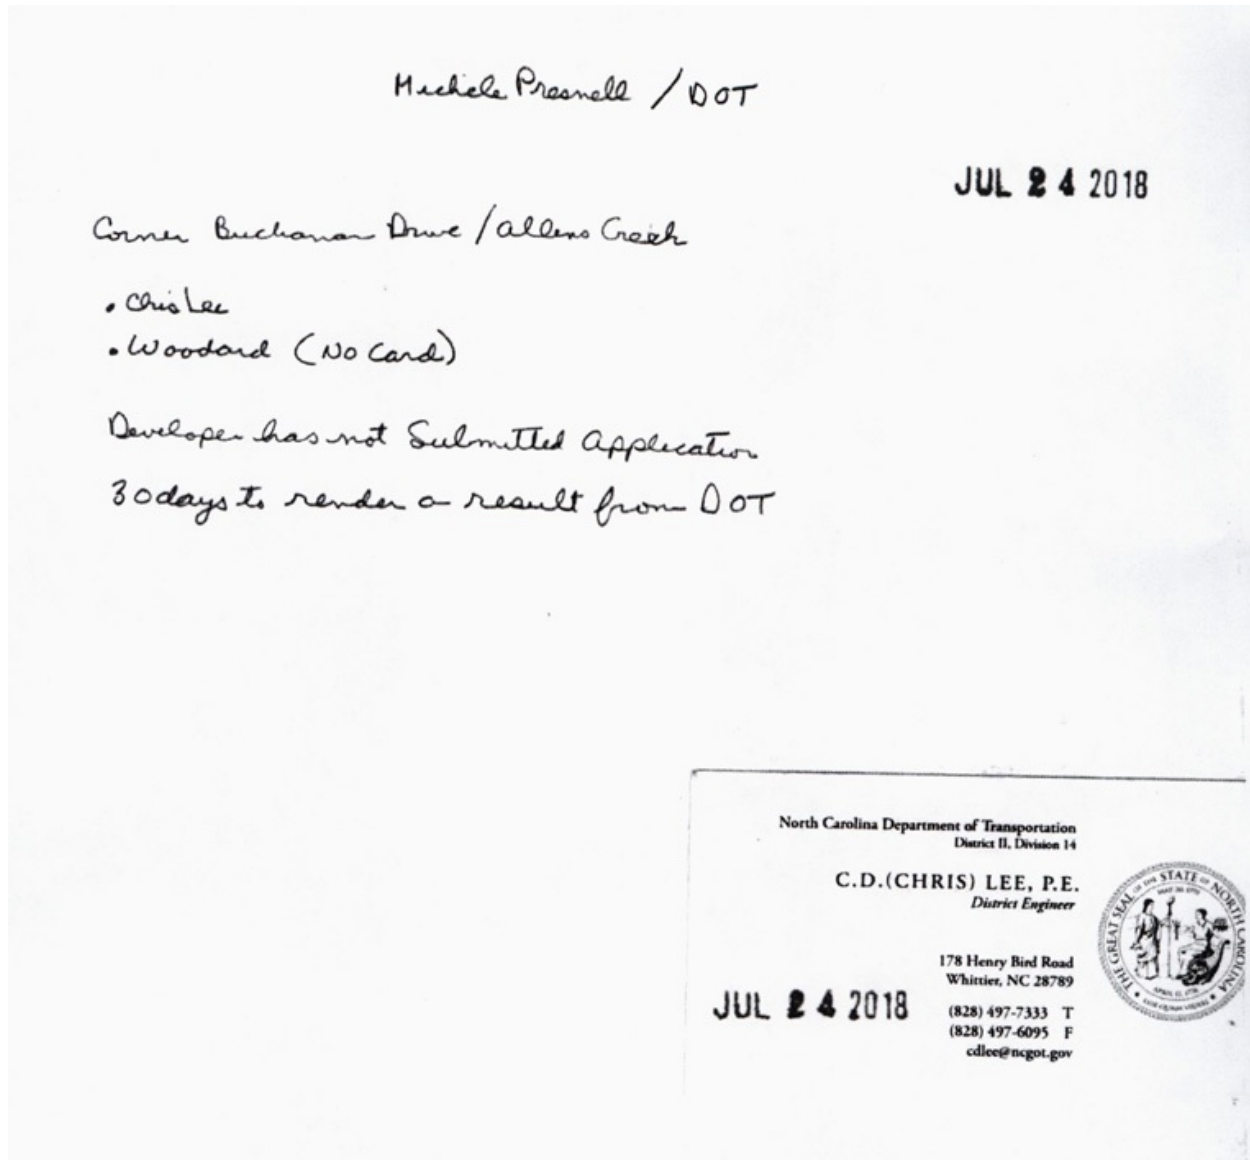 Michele Presnell / DOT
JUL 24 2018
Corner Buchanan Drive / Allens Creek
• Chris Lee
• Woodard (No Card)
Developer has not Submitted Application
30 days to render a result from DOT
North Carolina Department of Transportation
District II, Division 14
C.D.(CHRIS) LEE, P.E.
District Engineer
178 Henry Bird Road
Whittier, NC 28789
(828) 497-7333 T
(828) 497-6095 F
cdlee@ncgot.gov
JUL 24 2018
THE GREAT SEAL OF THE STATE OF NORTH CAROLINA
MAY 20 1775
APRIL 12, 1776